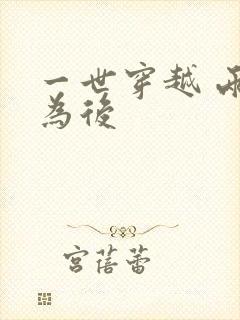 一世穿越
為後
宮蓓蕾